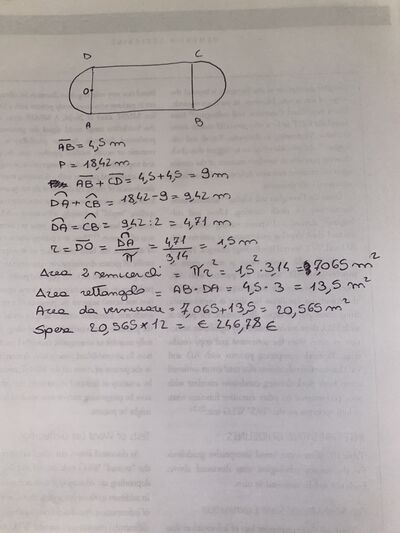 D C
O
A B
A̅B̅ = 4,5 m
P = 18,42 m
A̅B̅ + C̅D̅ = 4,5 + 4,5 = 9 m
D͡A + C͡B = 18,42 - 9 = 9,42 m
D͡A = C͡B = 9,42 : 2 = 4,71 m
r = D̅O̅ = D͡A/π = 4,71/3,14 = 1,5 m
Area 2 semicerchi = πr² = 1,5² · 3,14 = 7,065 m²
Area rettangolo = AB · DA = 4,5 · 3 = 13,5 m²
Area da verniciare = 7,065 + 13,5 = 20,565 m²
Spesa 20,565 × 12 = € 246,78 €